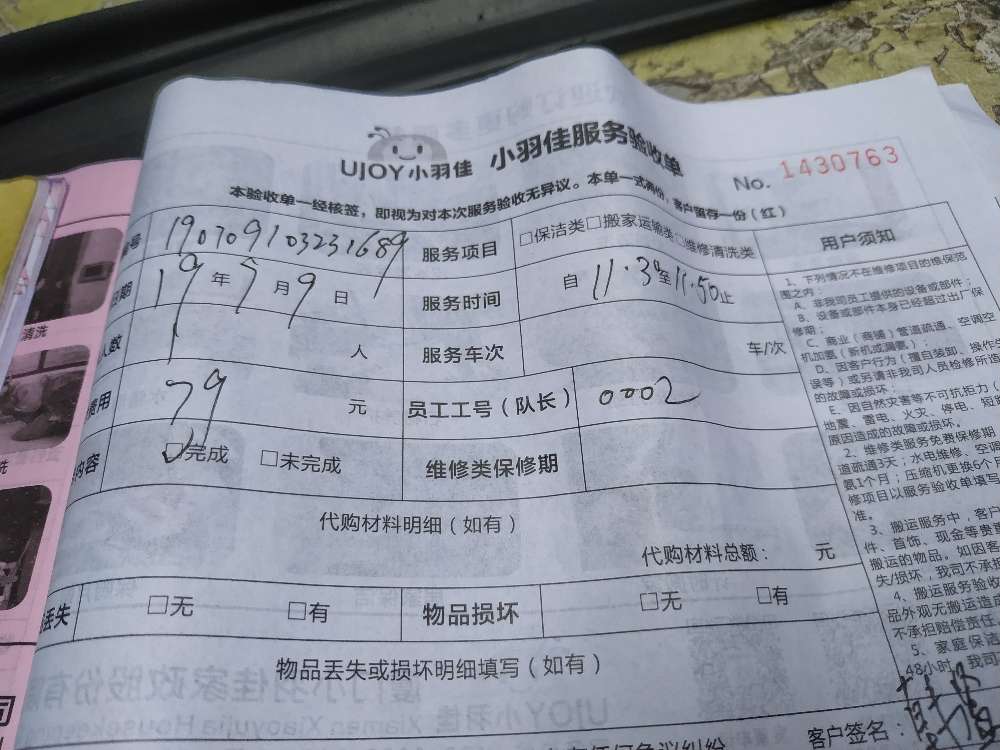 UJOY小羽佳 小羽佳服务验收单
No. 1430763
本验收单一经核签，即视为对本次服务验收无异议。本单一式两份，客户留存一份（红）
号 190709103231689 服务项目 □保洁类□搬家运输类□维修清洗类
期 19年7月9日 服务时间 自11·30至11·50止
人数 1 人 服务车次 车/次
费用 79 元 员工工号（队长） 0002
内容 ☑完成 □未完成 维修类保修期
代购材料明细（如有）
代购材料总额： 元
丢失 □无 □有 物品损坏 □无 □有
物品丢失或损坏明细填写（如有）
客户签名：
用户须知
1、下列情况不在维修项目的维保范
围之内：
A、非我司员工提供的设备或部件；
B、设备或部件本身已经超过出厂保
修期；
C、商业（商铺）管道疏通、空调空
机加氨（新机或漏氨）；
D、因客户行为（擅自装卸、操作失
误等）或另请非我司人员检修所造
的故障或损坏；
E、因自然灾害等不可抗拒力（
地震、雷电、火灾、停电、短路
原因造成的故障或损坏。
2、维修类服务免费保修期
道疏通3天；水电维修、空调
氨1个月；压缩机更换6个月
修项目以服务验收单填写
准。
3、搬运服务中，客户
件、首饰、现金等贵重
搬运的物品。如因客
失/损坏，我司不承担
4、搬运服务验收
品外观无搬运造成
不承担赔偿责任。
5、家庭保洁
48小时，我司
清洗
洗
司